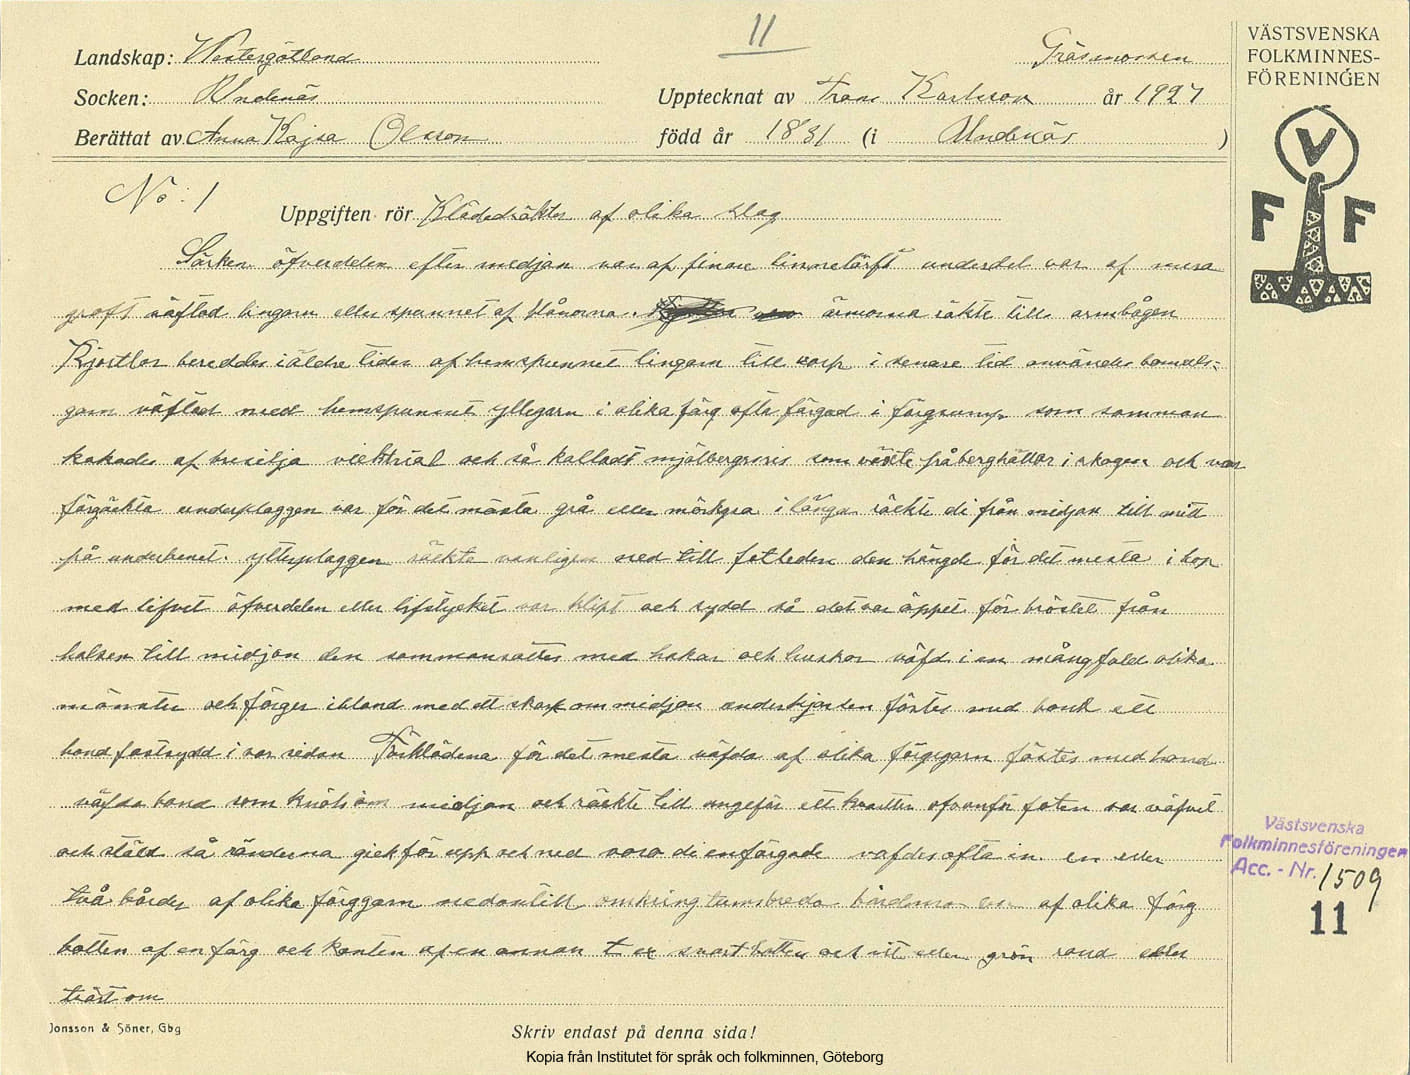 11
Landskap: Westergötland Gräsmossen
Socken: Undenäs Upptecknat av Frans Karlsson år 1927
Berättat av Anna Kajsa Olsson född år 1831 (i Undenäs )
No: 1
Uppgiften rör Klädedräkter af olika slag
Särken öfverdelen efter medjan var af finare linnelärft underdel var af mera
groft väftad lingarn eller spunnet af blånorna. ärmorna räkte till armbågen
Kjortlar bereddes i äldre tider af hemspunnet lingarn till varp i senare tid användes bomuls-
garn väftad med hemspunnet yllegarn i olika färg ofta färgad i färgsump som samman
kokades af bresilja vicktrial och så kalladt mjölbergsris som växte på berghällar i skogen och var
färgäkta underplaggen var för det mästa grå eller mörkgra i längd räckte di från midjan till mitt
på underbenet. ytterplaggen räckte vanligen ned till fotleden den hängde för det mesta i hop
med lifvet öfverdelen eller lifstycket var klipt och sydd så det var öppet för bröstet från
halsen till midjan den sammansattes med hakar och huskor väfd i en mångfald olika
mönster och färger ibland med ett skarp om midjan underkjorten fästes med band ett
band fastsydd i var sidan Förklädena för det mesta väfda af olika färggarn fästes med hand
väfda band som knöts om midjan och räckte till ungefär ett kvarter ofvanför foten var väfvet
och stäld så ränderna gick för upp och ned voro di enfärgade vafdes ofta in en eller
två bårder af olika färggarn nedantill omkring tumsbreda bårderna var af olika färg
botten af en färg och kanten af en annan t ex svart botten och vit eller grön rand eller
tvärt om
Jonsson & Söner, Gbg
Skriv endast på denna sida!
Kopia från Institutet för språk och folkminnen, Göteborg
VÄSTSVENSKA
FOLKMINNES-
FÖRENINGEN
V
F F
Västsvenska
Folkminnesföreningen
Acc. - Nr. 1509
11